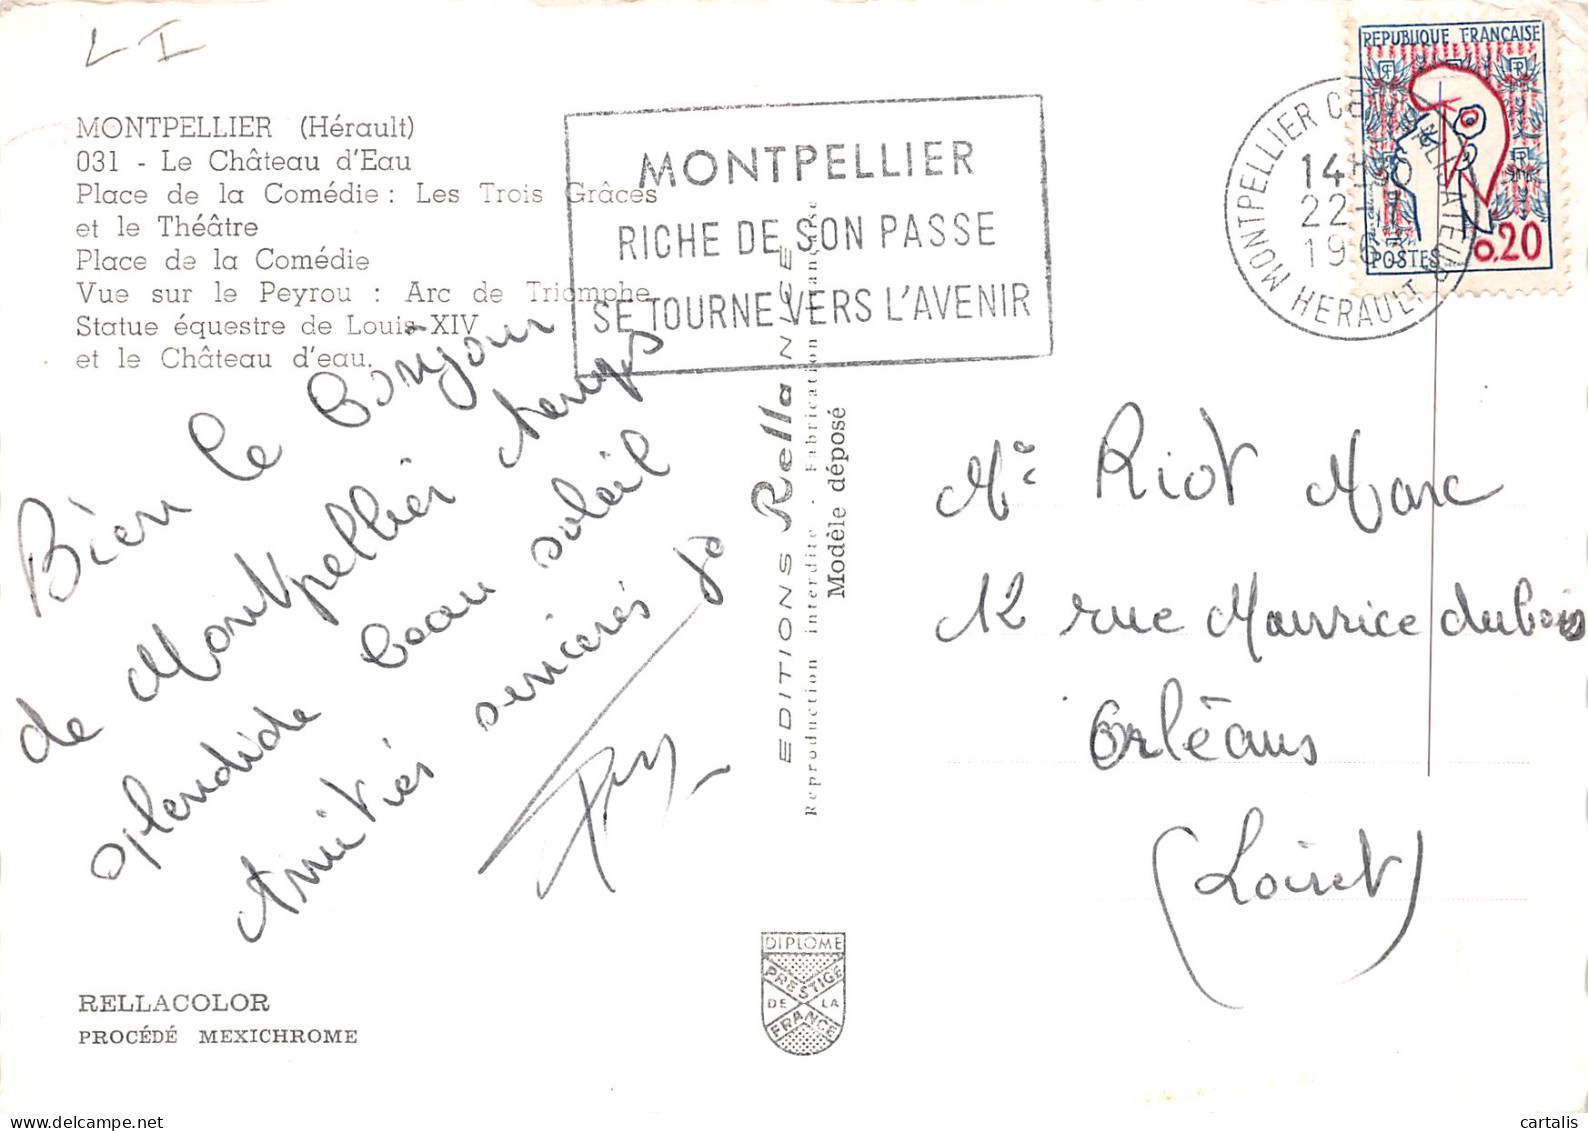 LI
MONTPELLIER (Hérault)
031 - Le Château d'Eau
Place de la Comédie : Les Trois Grâces
et le Théâtre
Place de la Comédie
Vue sur le Peyrou : Arc de Triomphe
Statue équestre de Louis XIV
et le Château d'eau.
MONTPELLIER
RICHE DE SON PASSE
SE TOURNE VERS L'AVENIR
REPUBLIQUE FRANÇAISE
0.20
POSTES
MONTPELLIER
HERAULT
14
22
196
Bien le bonjour
de Montpellier temps
splendide beau soleil
Amitiés sincères
EDITIONS Rella NICE
Reproduction interdite - Fabrication française
Modèle déposé
Mr Riot Marc
12 rue Maurice dubois
Orléans
(Loiret)
DIPLOME
PRESTIGE
DE LA
FRANCE
RELLACOLOR
PROCÉDÉ MEXICHROME
delcampe.net
cartalis